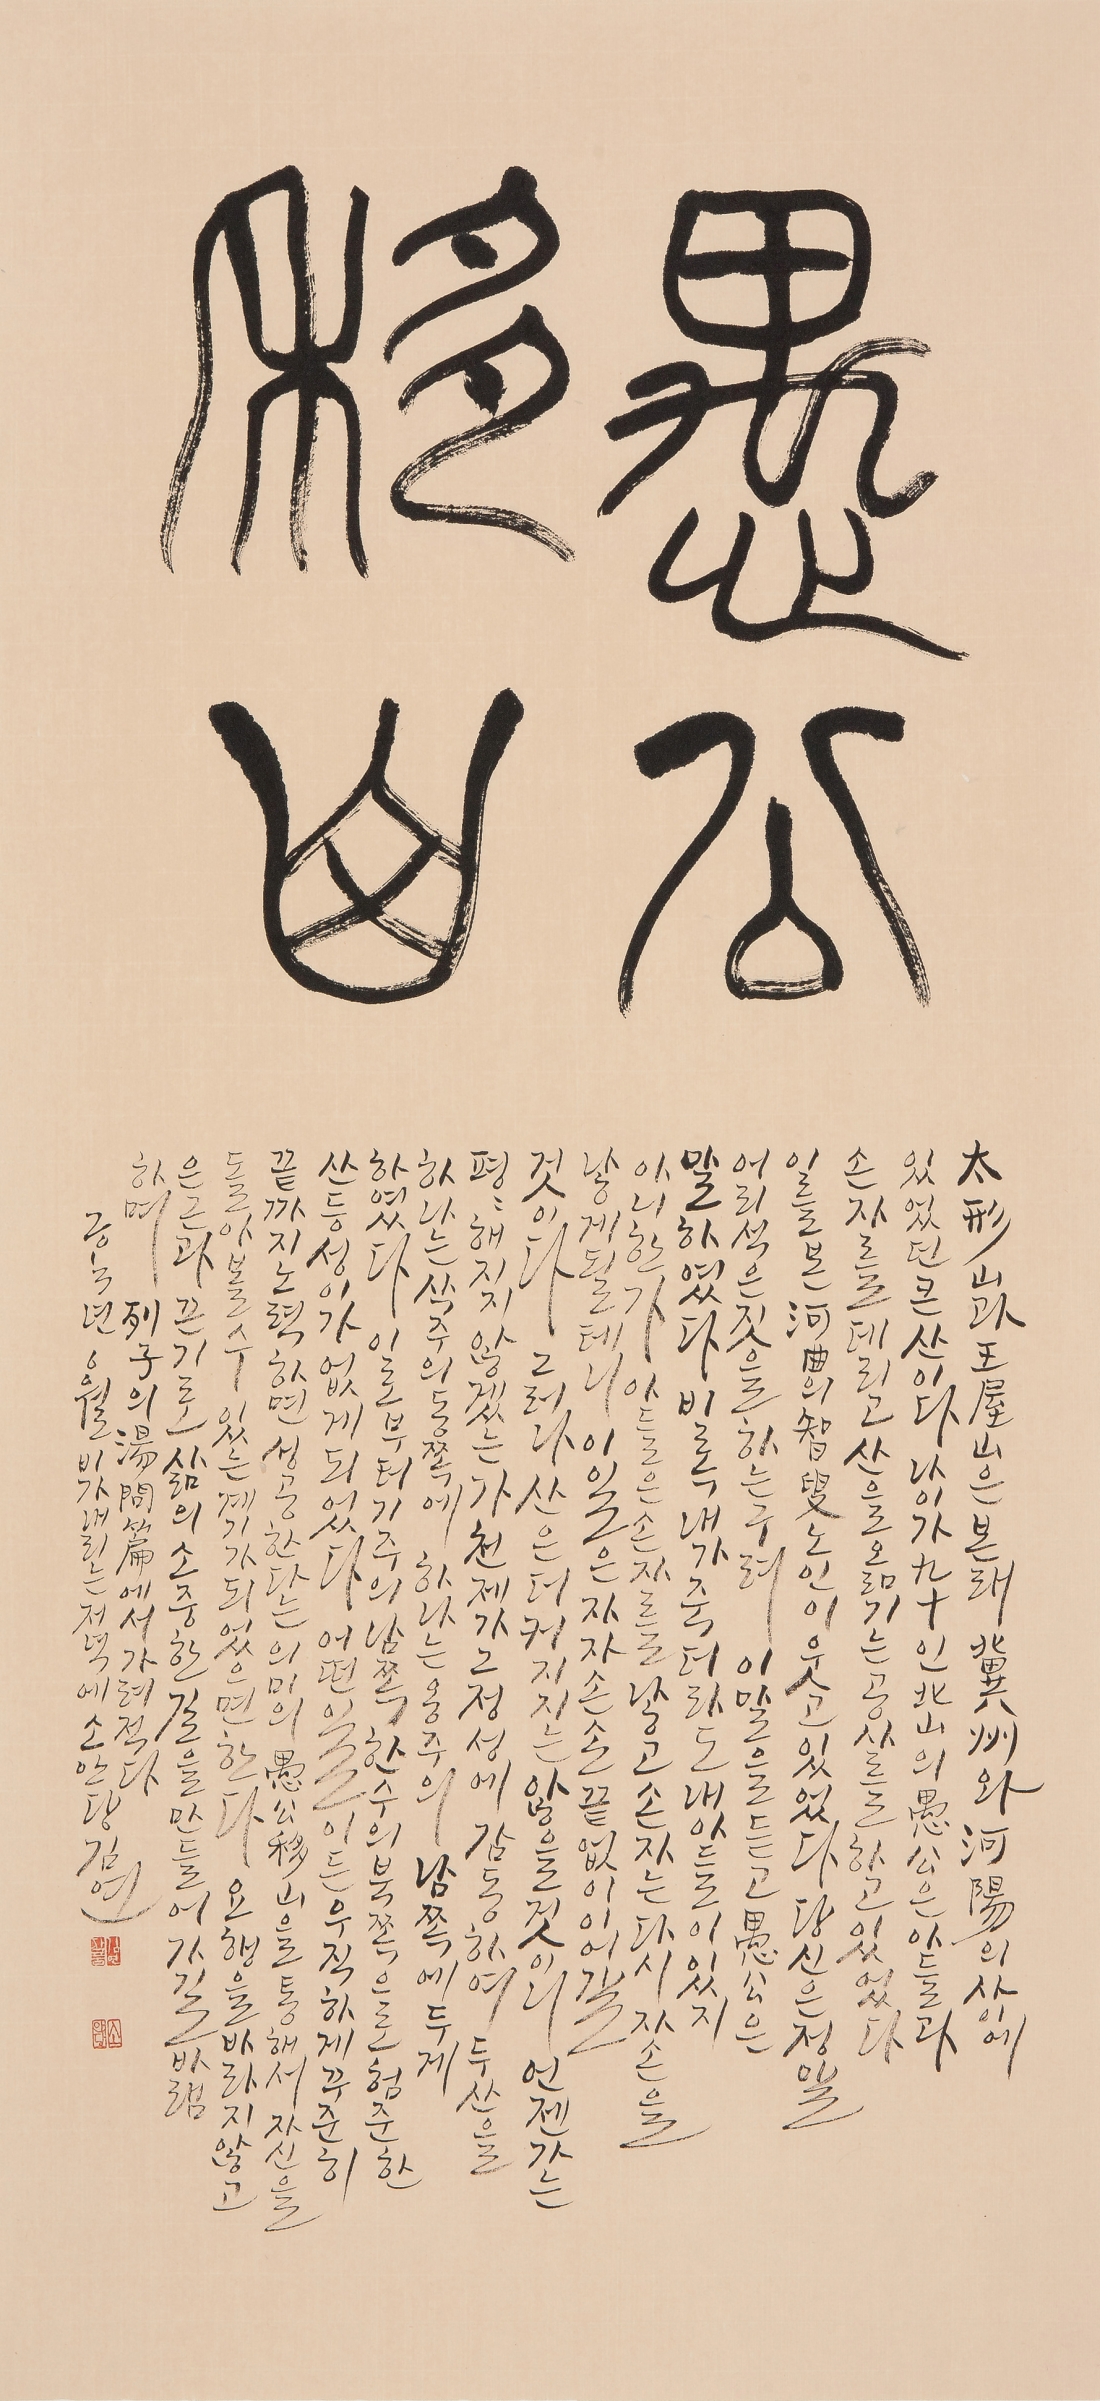 愚公
移山
太形山과 王屋山은 본래 冀州와 河陽의 사이에
있었던 큰 산이다 나이가 九十인 北山의 愚公은 아들과
손자를 데리고 산을 옮기는 공사를 하고 있었다
이를 본 河曲의 智叟노인이 웃고 있었다 당신은 정말
어리석은 짓을 하는구려 이 말을 듣고 愚公은
말하였다 비록 내가 죽더라도 내 아들이 있지
아니한가 아들은 손자를 낳고 손자는 다시 자손을
낳게 될 테니 이 일은 자자손손 끝없이 이어갈
것이다 그러나 산은 더 커지지는 않을 것이니 언젠가는
평평해지지 않겠는가 천제가 그 정성에 감동하여 두 산을
하나는 삭주의 동쪽에 하나는 옹주의 남쪽에 두게
하였다 이로부터 기주의 남쪽 한수의 북쪽으로 험준한
산등성이가 없게 되었다 어떤 일이든 우직하게 꾸준히
끝까지 노력하면 성공한다는 의미의 愚公移山을 통해서 자신을
돌아볼 수 있는 계기가 되었으면 한다 요행을 바라지 않고
은근과 끈기로 삶의 소중한 길을 만들어 가길 바램
하며 列子의 湯問篇에서 가려 적다
년 월 비가 내리는 저녁에 소안당 김연